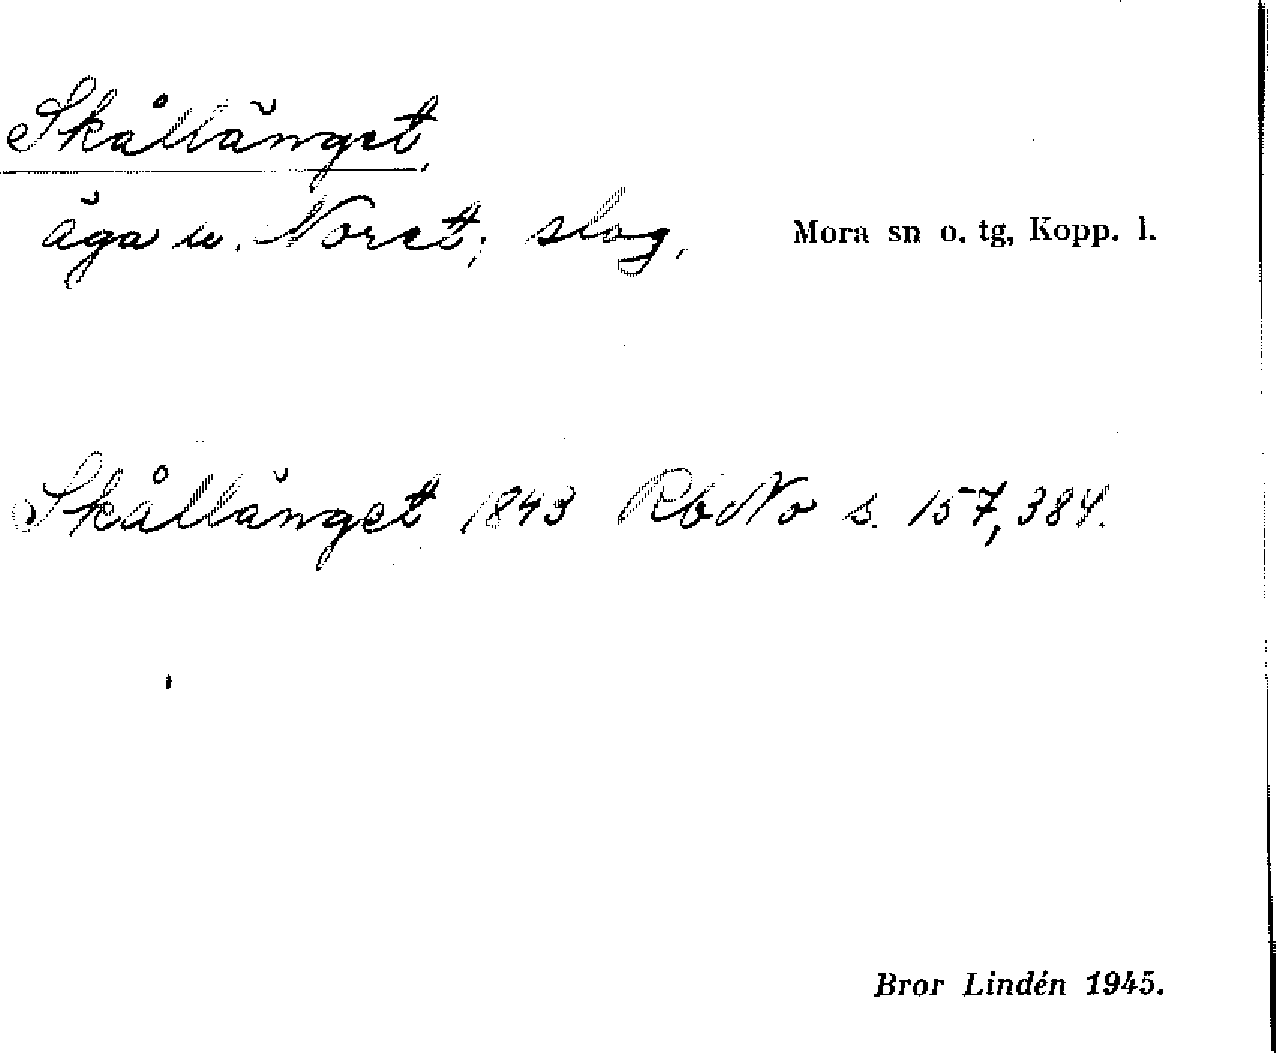 Skållänget,
äga u. Noret; slog,
Mora sn o. tg, Kopp. l.
Skållänget 1843 RbNo s. 157, 384.
Bror Lindén 1945.